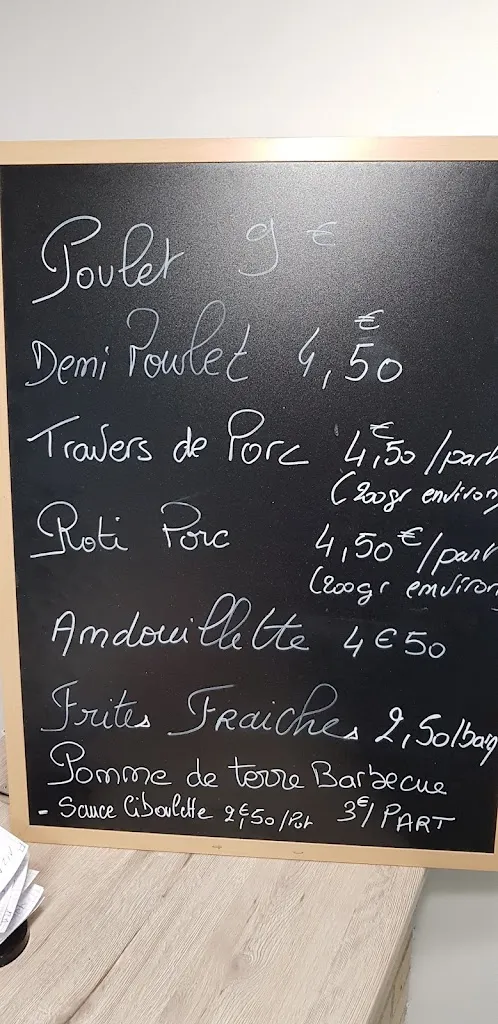 Poulet 9€
Demi Poulet 4,50€
Travers de Porc 4,50€/part
(200gr environ
Roti Porc 4,50€/part
(200gr environ
Andouillette 4€50
Frites Fraiches 2,50/barq
Pomme de terre Barbecue
- Sauce Ciboulette 2€50/Pot 3€/PART